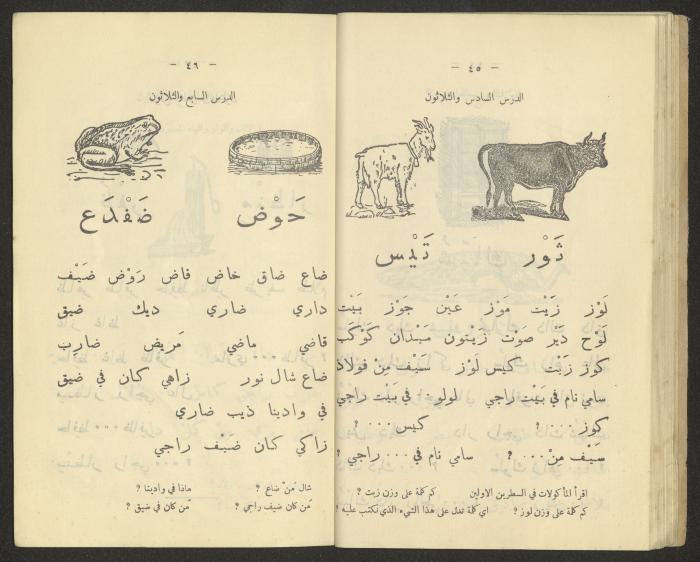 - ٤٥ -
الدرس السادس والثلاثون
ثَوْر تَيْس
لَوْز زَيْت مَوْز عَيْن جَوْز بَيْت
لَوْح دَيْر صَوْت زَيتون مَيْدان كَوْكَب
كوز زَيْت كيس لَوْز سَيْف مِنْ فولاذ
سامي نام في بَيْت راجي لولو في بَيْت راجي
كوز ... ؟ كيس ... ؟
سَيْف مِنْ ... ؟ سامي نام في ... راجي ؟
اقرأ المأكولات في السطرين الاولين كم كلمة على وزن زيت ؟
كم كلمة على وزن لوز ؟ اي كلمة تدل على هذا الشيء الذي نكتب عليه ؟
- ٤٦ -
الدرس السابع والثلاثون
حَوْض ضَفْدَع
ضاع ضاق خاض فاض رَوْض ضَيْف
داري ضاري ديك ضيق
قاضي ماضي مَريض ضارِب
ضاع شال نور زاهي كان في ضيق
في وادينا ذيب ضاري
زاكي كان ضَيْف راجي
شال مَنْ ضاع ؟ ماذا في وادينا ؟
مَن كان ضيف راجي ؟ مَن كان في ضيق ؟